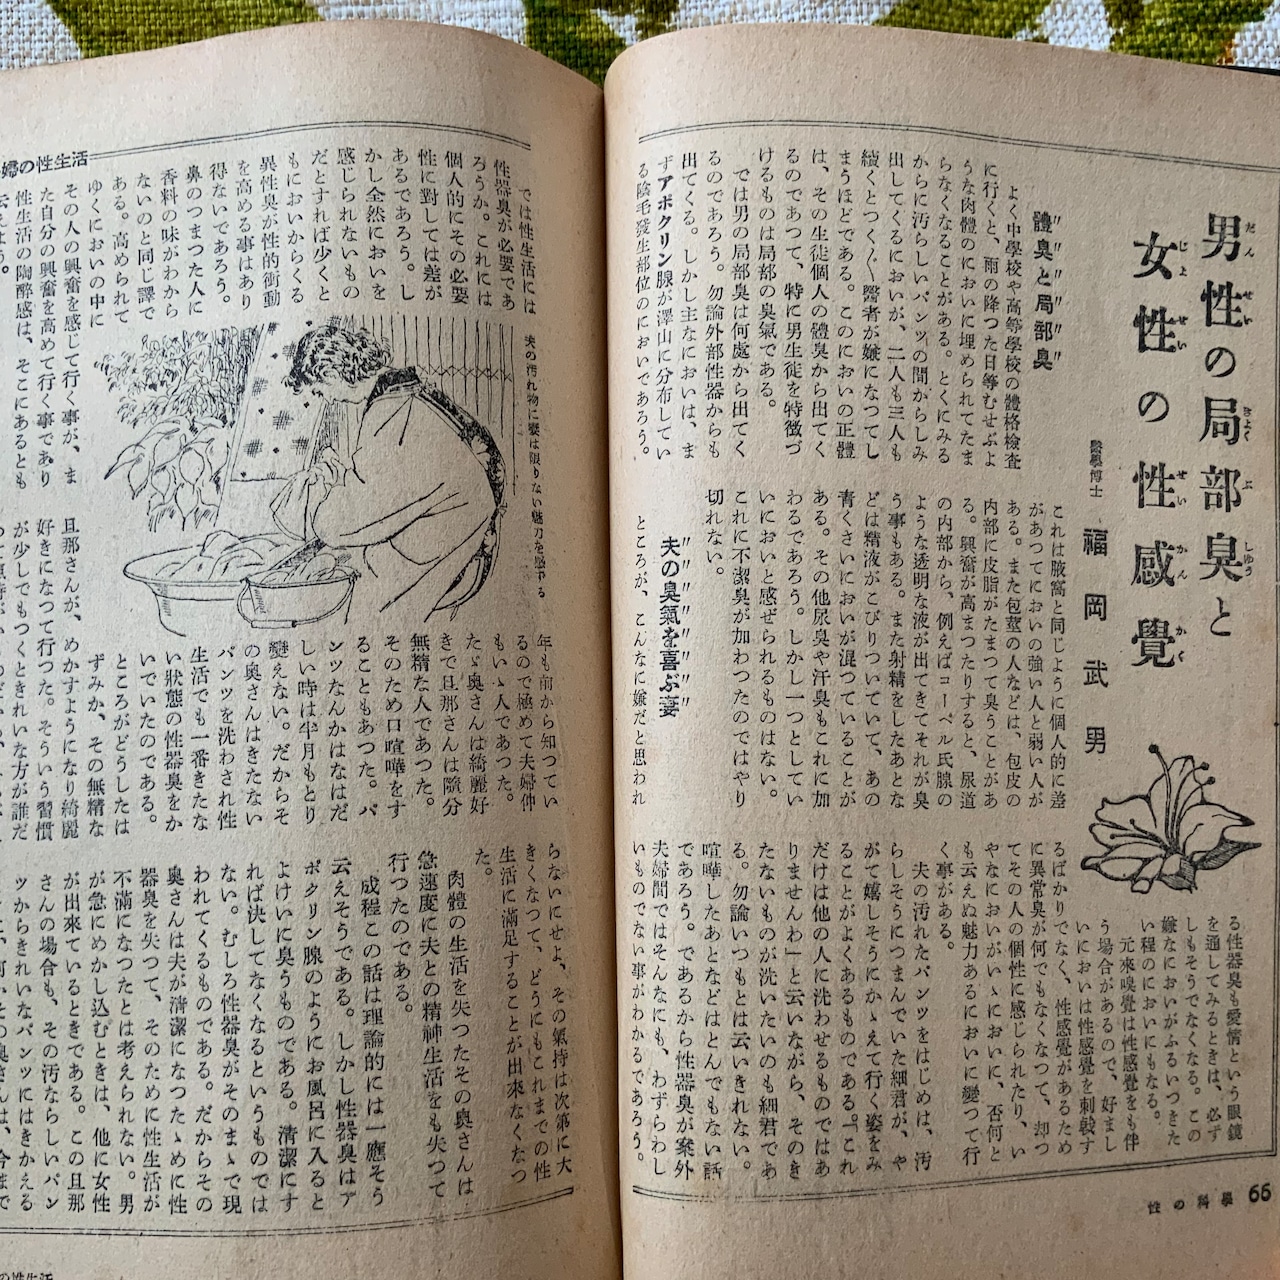 男性の局部臭と
女性の性感覺
醫學博士 福岡武男
體臭と局部臭
よく中學校や高等學校の體格檢査
に行くと、雨の降つた日等むせぶよ
うな肉體のにおいに埋められてたま
らなくなることがある。とくにみる
からに汚らしいパンツの間からしみ
出してくるにおいが、二人も三人も
續くとつく〲醫者が嫌になつてし
まうほどである。このにおいの正體
は、その生徒個人の體臭から出てく
るのであつて、特に男生徒を特徴づ
けるものは局部の臭氣である。
では男の局部臭は何處から出てく
るのであろう。勿論外部性器からも
出てくる。しかし主なにおいは、ま
ずアポクリン腺が澤山に分布してい
る陰毛發生部位のにおいであろう。
これは腋窩と同じように個人的に差
があつてにおいの強い人と弱い人が
ある。また包莖の人などは、包皮の
内部に皮脂がたまつて臭うことがあ
る。興奮が高まつたりすると、尿道
の内部から、例えばコーペル氏腺の
ような透明な液が出てきてそれが臭
う事もある。また射精をしたあとな
どは精液がこびりついていて、あの
青くさいにおいが混つていることが
ある。その他尿臭や汗臭もこれに加
わるであろう。しかし一つとしてい
いにおいと感ぜられるものはない。
これに不潔臭が加わつたのではやり
切れない。
夫の臭氣を喜ぶ妻
ところが、こんなに嫌だと思われ
る性器臭も愛情という眼鏡
を通してみるときは、必ず
しもそうでなくなる。この
嫌なにおいがふるいつきた
い程のにおいにもなる。
元來嗅覺は性感覺をも伴
う場合があるので、好まし
いにおいは性感覺を刺戟す
るばかりでなく、性感覺があるため
に異常臭が何でもなくなつて、却つ
てその人の個性に感じられたり、い
やなにおいがいゝにおいに、否何と
も云えぬ魅力あるにおいに變つて行
く事がある。
夫の汚れたパンツをはじめは、汚
らしそうにつまんでいた細君が、や
がて嬉しそうにかゝえて行く姿をみ
ることがよくあるものである。「これ
だけは他の人に洗わせるものではあ
りませんわ」と云いながら、そのき
たないものが洗いたいのも細君であ
る。勿論いつもとは云いきれない。
喧嘩したあとなどはとんでもない話
であろう。であるから性器臭が案外
夫婦間ではそんなにも、わずらわし
いものでない事がわかるであろう。
性の科學 66
婦の性生活
では性生活には
性器臭が必要であ
ろうか。これには
個人的にその必要
性に對しては差が
あるであろう。し
かし全然においを
感じられないもの
だとすれば少くと
もにおいからくる
異性臭が性的衝動
を高める事はあり
得ないであろう。
鼻のつまつた人に
香料の味がわから
ないのと同じ譯で
ある。高められて
ゆくにおいの中に
その人の興奮を感じて行く事が、ま
た自分の興奮を高めて行く事であり
性生活の陶醉感は、そこにあるとも
云えよう。
夫の汚れ物に妻は限りない魅力を感ずる
年も前から知つてい
るので極めて夫婦仲
もいゝ人であつた。
たゞ奥さんは綺麗好
きで旦那さんは隨分
無精な人であつた。
そのため口喧嘩をす
ることもあつた。パ
ンツなんかはなはだ
しい時は半月もとり
變えない。だからそ
の奥さんはきたない
パンツを洗わされ性
生活でも一番きたな
い狀態の性器臭をか
いでいたのである。
ところがどうしたは
ずみか、その無精な
旦那さんが、めかすようになり綺麗
好きになつて行つた。そういう習慣
が少しでもつくときれいな方が誰だ
らないにせよ、その氣持は次第に大
きくなつて、どうにもこれまでの性
生活に滿足することが出來なくなつ
た。
肉體の生活を失つたその奥さんは
急速度に夫との精神生活をも失つて
行つたのである。
成程この話は理論的には一應そう
云えそうである。しかし性器臭はア
ポクリン腺のようにお風呂に入ると
よけいに臭うものである。清潔にす
れば決してなくなるというものでは
ない。むしろ性器臭がそのまゝで現
われてくるものである。だからその
奥さんは夫が清潔になつたゝめに性
器臭を失つて、そのために性生活が
不滿になつたとは考えられない。男
が急にめかし込むときは、他に女性
が出來ているときである。この旦那
さんの場合も、その汚ならしいパン
ツからきれいなパンツにはきかえる
の性生活